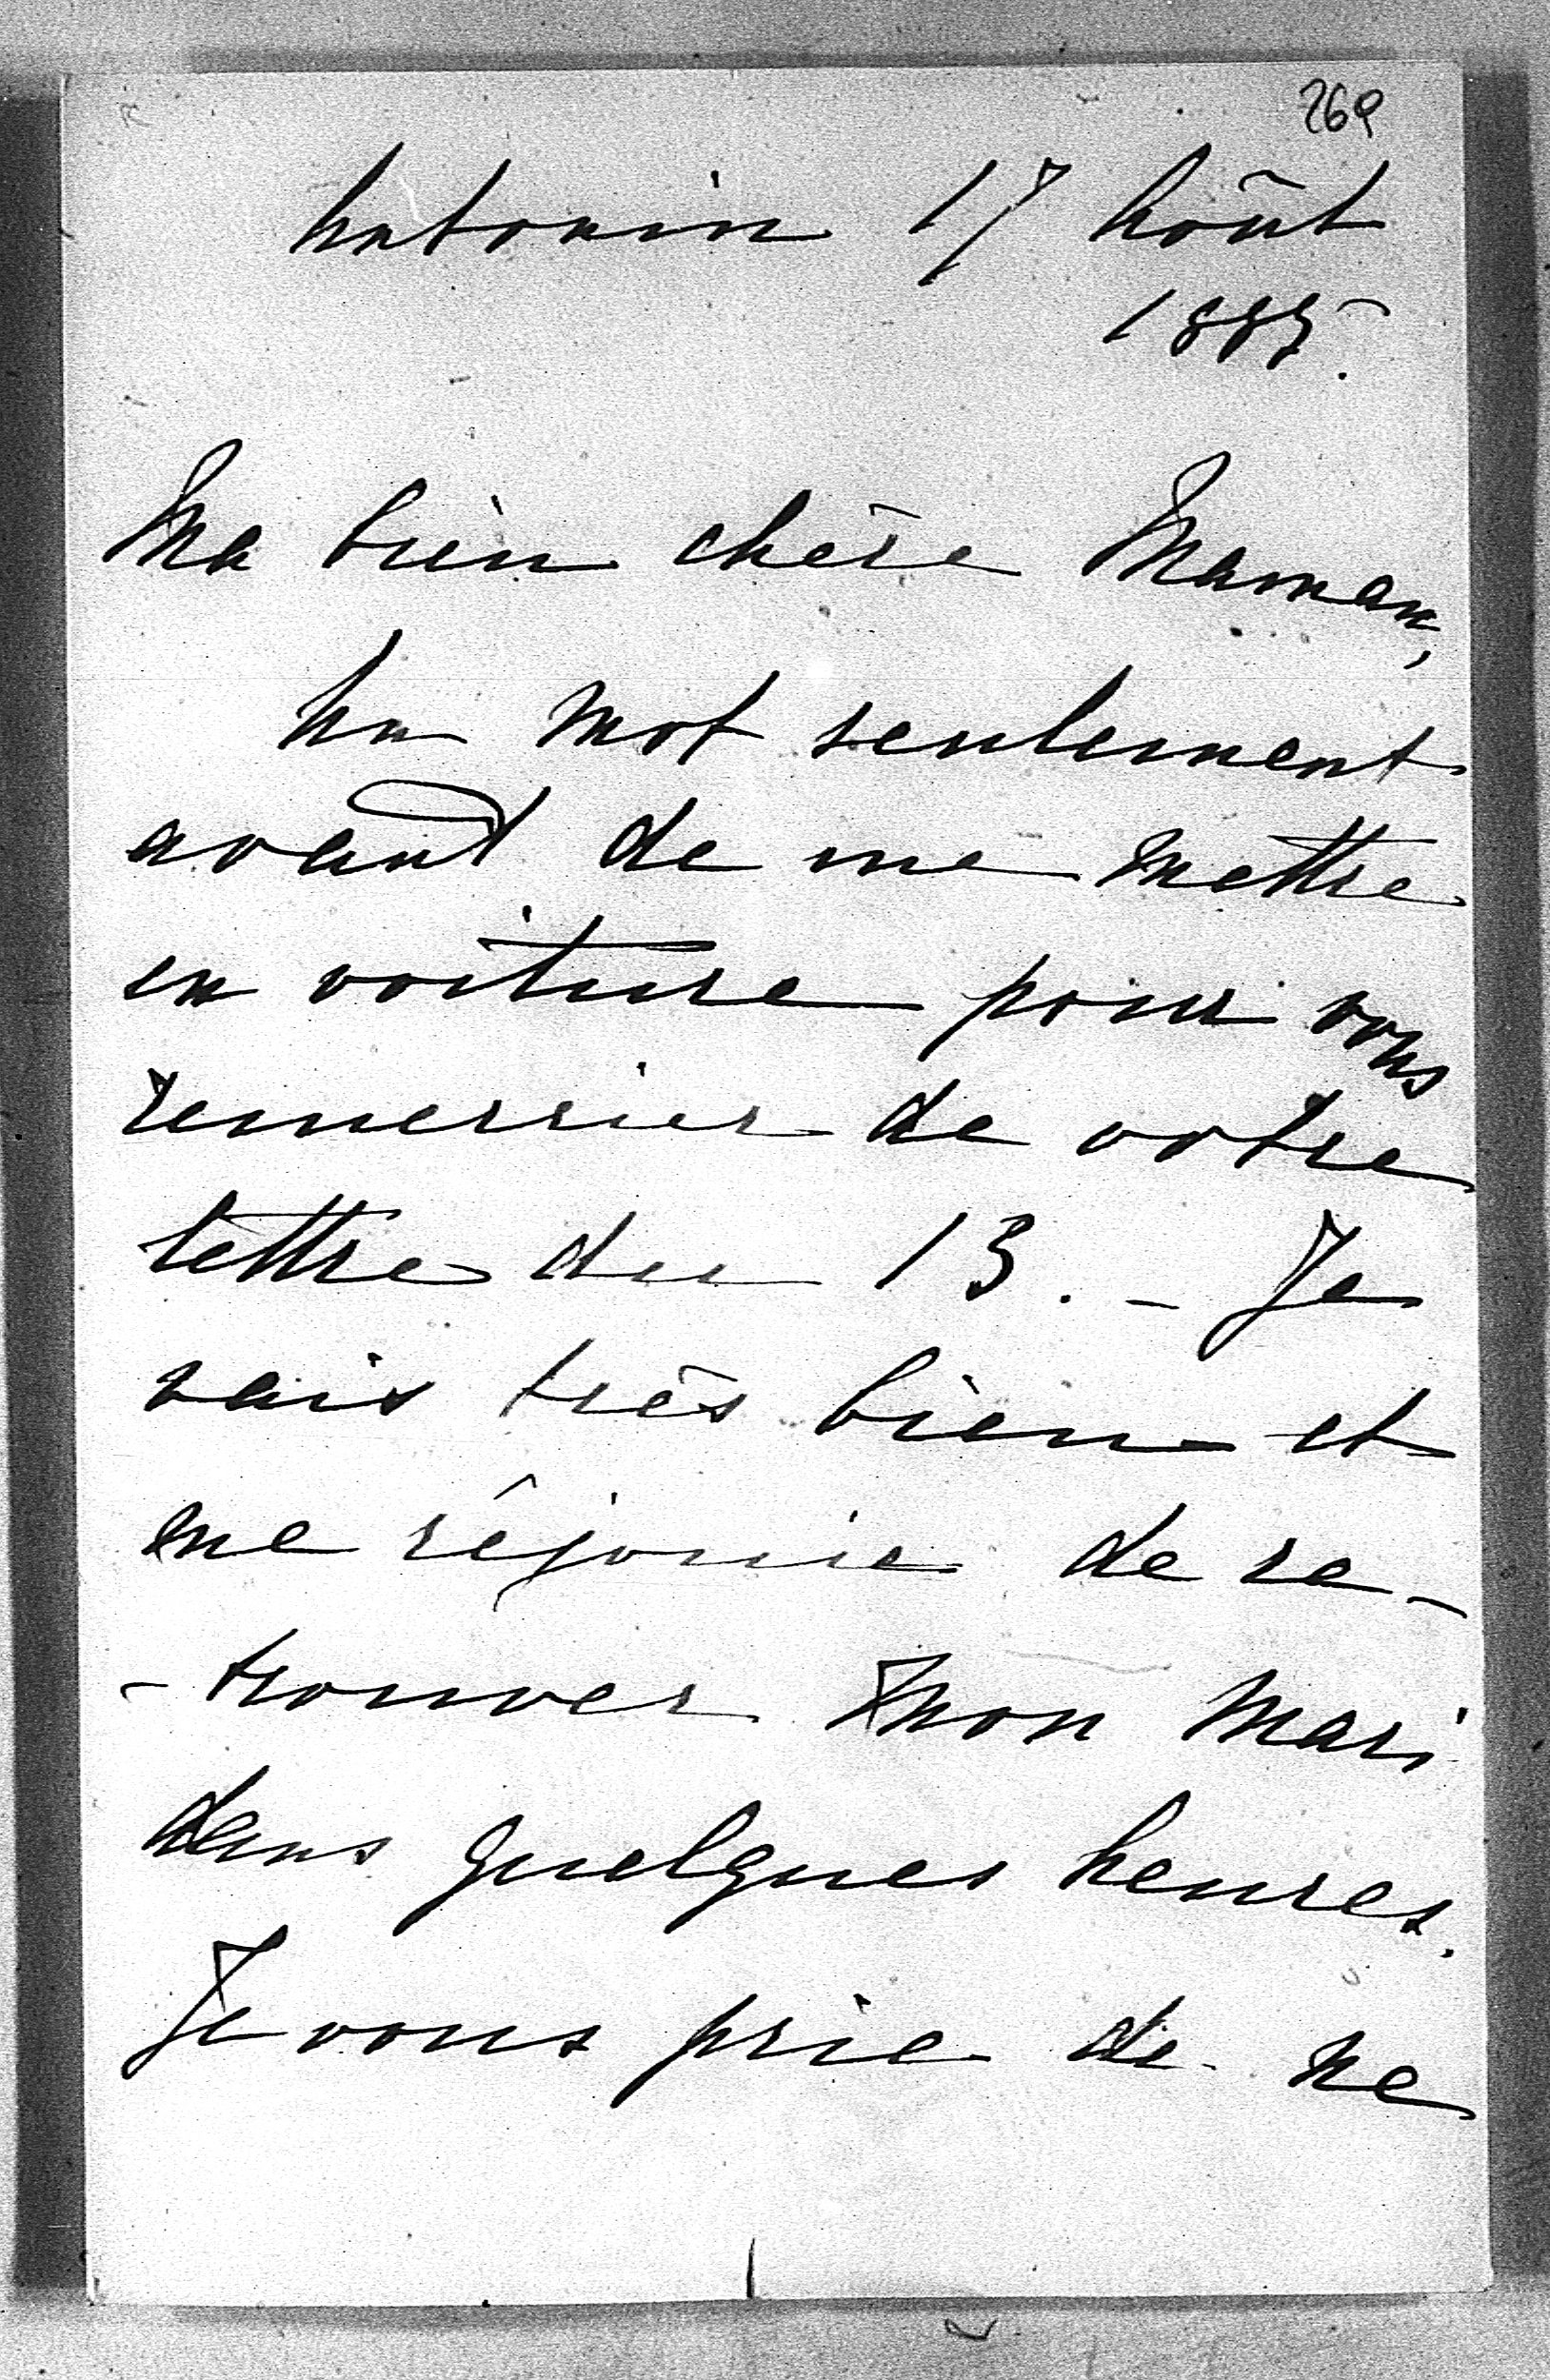 269
Antonin 17 Août
1885.
Ma bien chère Maman,
Un mot seulement
avant de me mettre
en voiture pour vous
remercier de votre
lettre du 13. – Je
vais très bien et
me réjouie de re-
- trouver mon mari
dans quelques heures.
Je vous prie de ne